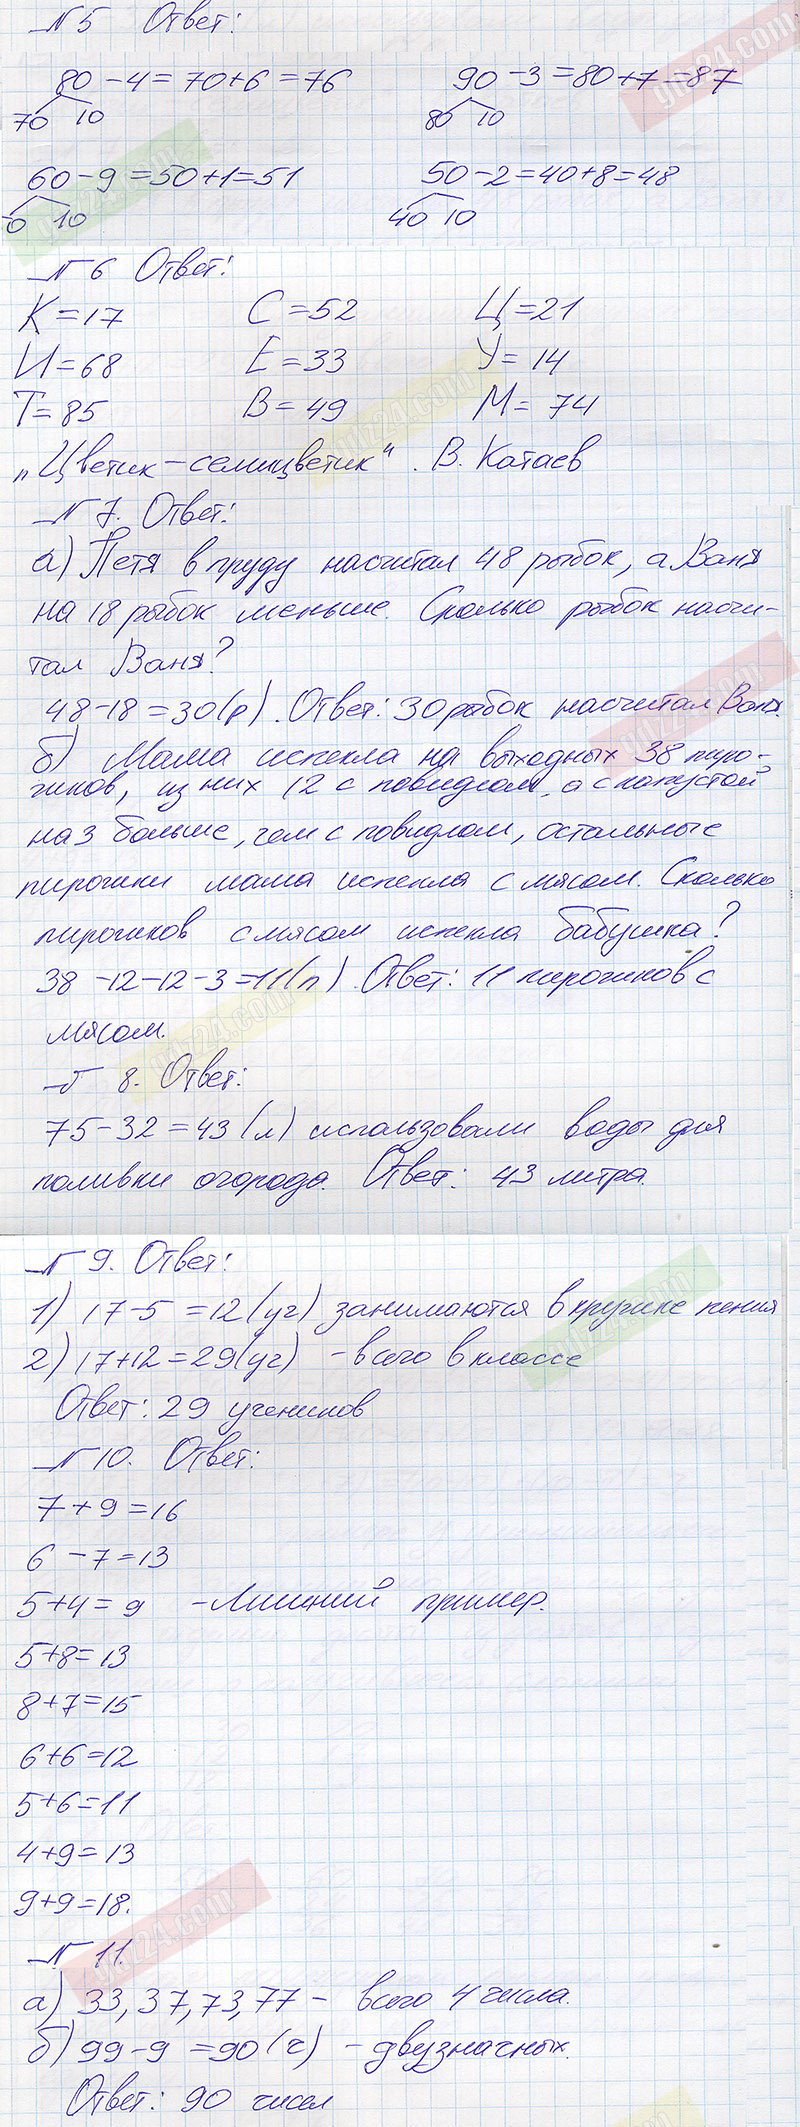 №5 Ответ:
80-4=70+6=76 90-3=80+7=87
70 10 80 10
60-9=50+1=51 50-2=40+8=48
0 10 40 10
№6 Ответ:
К=17 С=52 Ц=21
И=68 Е=33 У=14
Т=85 В=49 М=74
„Цветик-семицветик“. В. Катаев
№7. Ответ:
а) Петя в пруду насчитал 48 рыбок, а Ваня
на 18 рыбок меньше. Сколько рыбок насчи-
тал Ваня?
48-18=30(р). Ответ: 30 рыбок насчитал Ваня.
б) Мама испекла на выходных 38 пиро-
гиков, из них 12 с повидлом, а с капустой
на 3 больше, чем с повидлом, остальные
пирожки мама испекла с мясом. Сколько
пирожков с мясом испекла бабушка?
38-12-12-3=11(п). Ответ: 11 пирожков с
мясом.
№ 8. Ответ:
75-32=43(л) использовали воды для
поливки огорода. Ответ: 43 литра.
№ 9. Ответ:
1) 17-5=12(уч) занимаются в кружке пения
2) 17+12=29(уч) -всего в классе
Ответ: 29 учеников
№10. Ответ:
7+9=16
6-7=13
5+4=9 -Лишний пример.
5+8=13
8+7=15
6+6=12
5+6=11
4+9=13
9+9=18.
№ 11.
а) 33,37,73,77- всего 4 числа.
б) 99-9=90(ч) -двузначных.
Ответ: 90 чисел